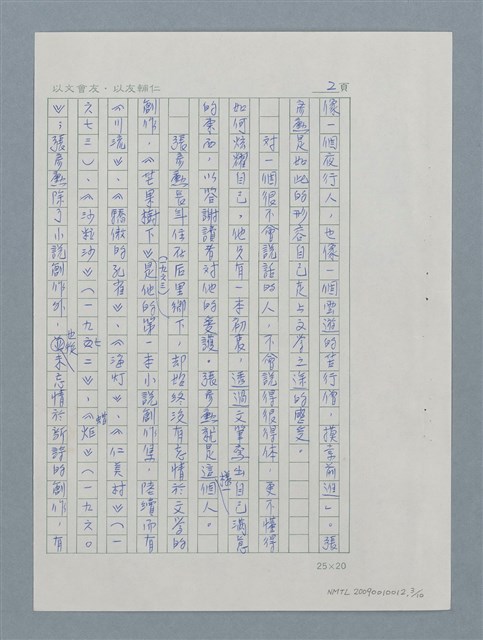 以文會友・以友輔仁
2頁
像一個夜行人,也像一個雲遊的苦行僧,摸索前進」。張
彥勳是如此的形容自己走上文學之途的感受。
對一個很不會說話的人,不會說得很得體,更不懂得
如何炫耀自己。他只有一本初衷,透過文筆寫出自己滿意
的東西,以答謝讀者對他的愛護。張彥勳就是這樣一個人。
張彥勳長年住在后里鄉下,却始終沒有忘情於文學的
創作,《芒果樹下》(一九六三)是他的第一本小說創作集,陸續而有
《川流》、《驕傲的孔雀》、《海灯》、《仁美村》(一
六七三)、《沙粒沙》(一九七二》、《蠟炬》(一九六〇
》;張彥勳除了小說創作外,也從未忘情於新詩的創作,有
25×20
NMTL 20090010012, 3/10